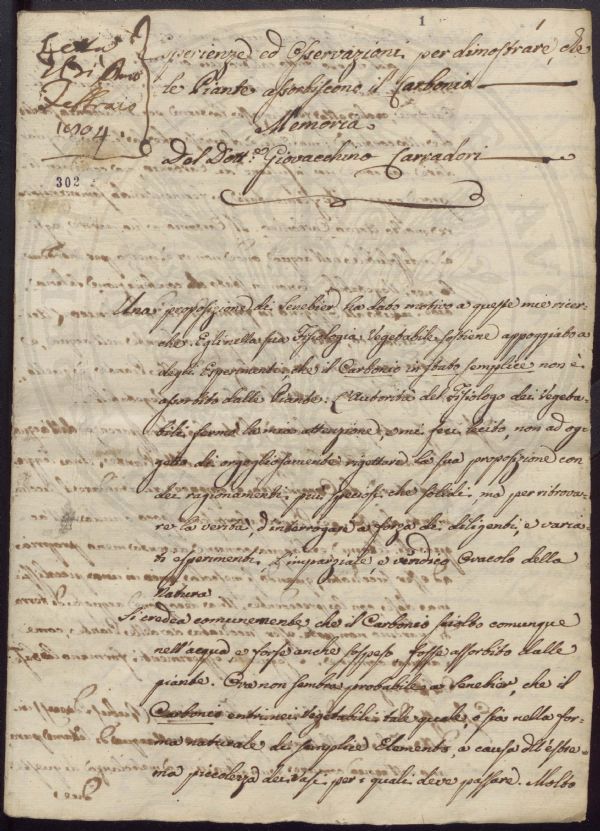 1
Letta
li
Febbraio
1804.
302
Sperienze ed Osservazioni per dimostrare, che
le Piante assorbiscono il Carbonio
Memoria
Del Dott.e Giovacchino Carradori
Una proposizione di Senebier ha dato motivo a queste mie ricer-
che. Egli nella sua Fisiologia Vegetabile sostiene appoggiato a
degli Esperimenti che il Carbonio in stato semplice non è
assorbito dalle Piante. L'autorità del Fisiologo dei Vegeta-
bili fermò la mia attenzione, e mi feci lecito, non ad og-
getto di orgogliosamente rigettare la sua proposizione con
dei ragionamenti più speciosi, che solidi, ma per ritrova-
re la verità, d'interrogare a forza de diligenti, e varia-
ti esperimenti l'imparziale, e veridico Oracolo della
Natura
Si credea comunemente che il Carbonio sciolto comunque
nell'acqua e forse anche sospeso fosse assorbito dalle
piante. Ora non sembra probabile a Senebier, che il
Carbonio entri nei Vegetabili tale quale, o sia nella for-
ma naturale di semplice Elemento, a causa dell'estre-
ma piccolezza dei vasi, per i quali deve passare. Molto